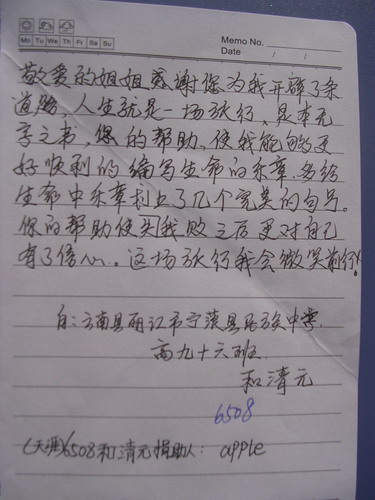 Memo No.
Mo Tu We Th Fr Sa Su
Date / /
敬爱的姐姐感谢您为我开辟了条
道路,人生就是一场旅行、是本无
字之书,您的帮助,使我能够更
好顺利的编写生命的乐章,
生命中乐章划上了几个完美的句号。
您的帮助使我败之后更对自己
有了信心。这场旅行我会微笑前行!
自:云南县丽江市宁蒗县民族中学.
高九十六班
和清元
6508
(天涯)6508和清元捐助人: apple